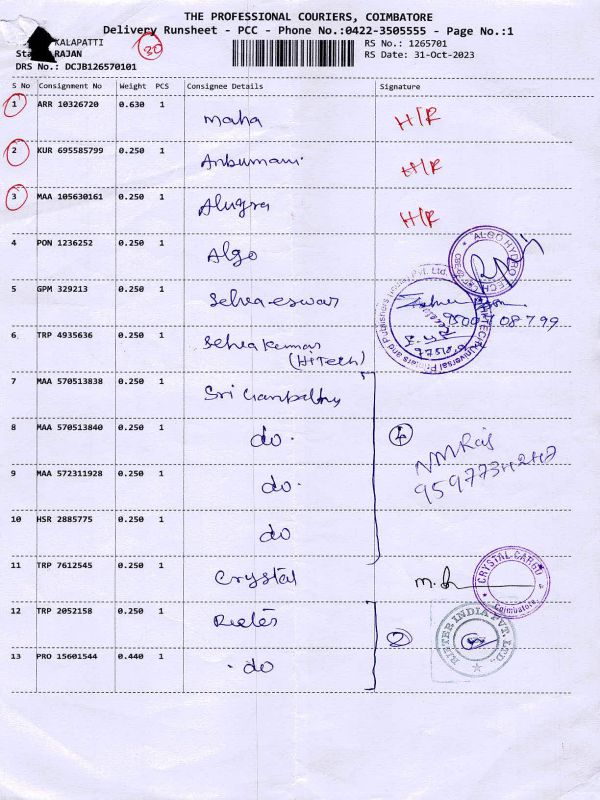 THE PROFESSIONAL COURIERS, COIMBATORE
Delivery Runsheet - PCC - Phone No.:0422-3505555 - Page No.:1
KALAPATTI
30
RS No.: 1265701
RAJAN
RS Date: 31-Oct-2023
DRS No.: DCJB126570101
S No Consignment No Weight PCS Consignee Details Signature
1 ARR 10326720 0.630 1 Maha H/R
2 KUR 695585799 0.250 1 Anbumani H/R
3 MAA 105630161 0.250 1 Alugra H/R
4 PON 1236252 0.250 1 Algo
ALGO HYDRO TECH
5 GPM 329213 0.250 1 Selva eswar
6 TRP 4935636 0.250 1 Selvakumar
(HiTech)
Universal Printers and Publishers Pvt. Ltd.
7 MAA 570513838 0.250 1 Sri Ganpathy
8 MAA 570513840 0.250 1 do. 4
NM Raj
9 MAA 572311928 0.250 1 do.
10 HSR 2885775 0.250 1 do
11 TRP 7612545 0.250 1 Crystal
CRYSTAL CARGO
Coimbatore
12 TRP 2052158 0.250 1 Rieter 2
RIETER INDIA PVT. LTD.
13 PRO 15601544 0.440 1 do